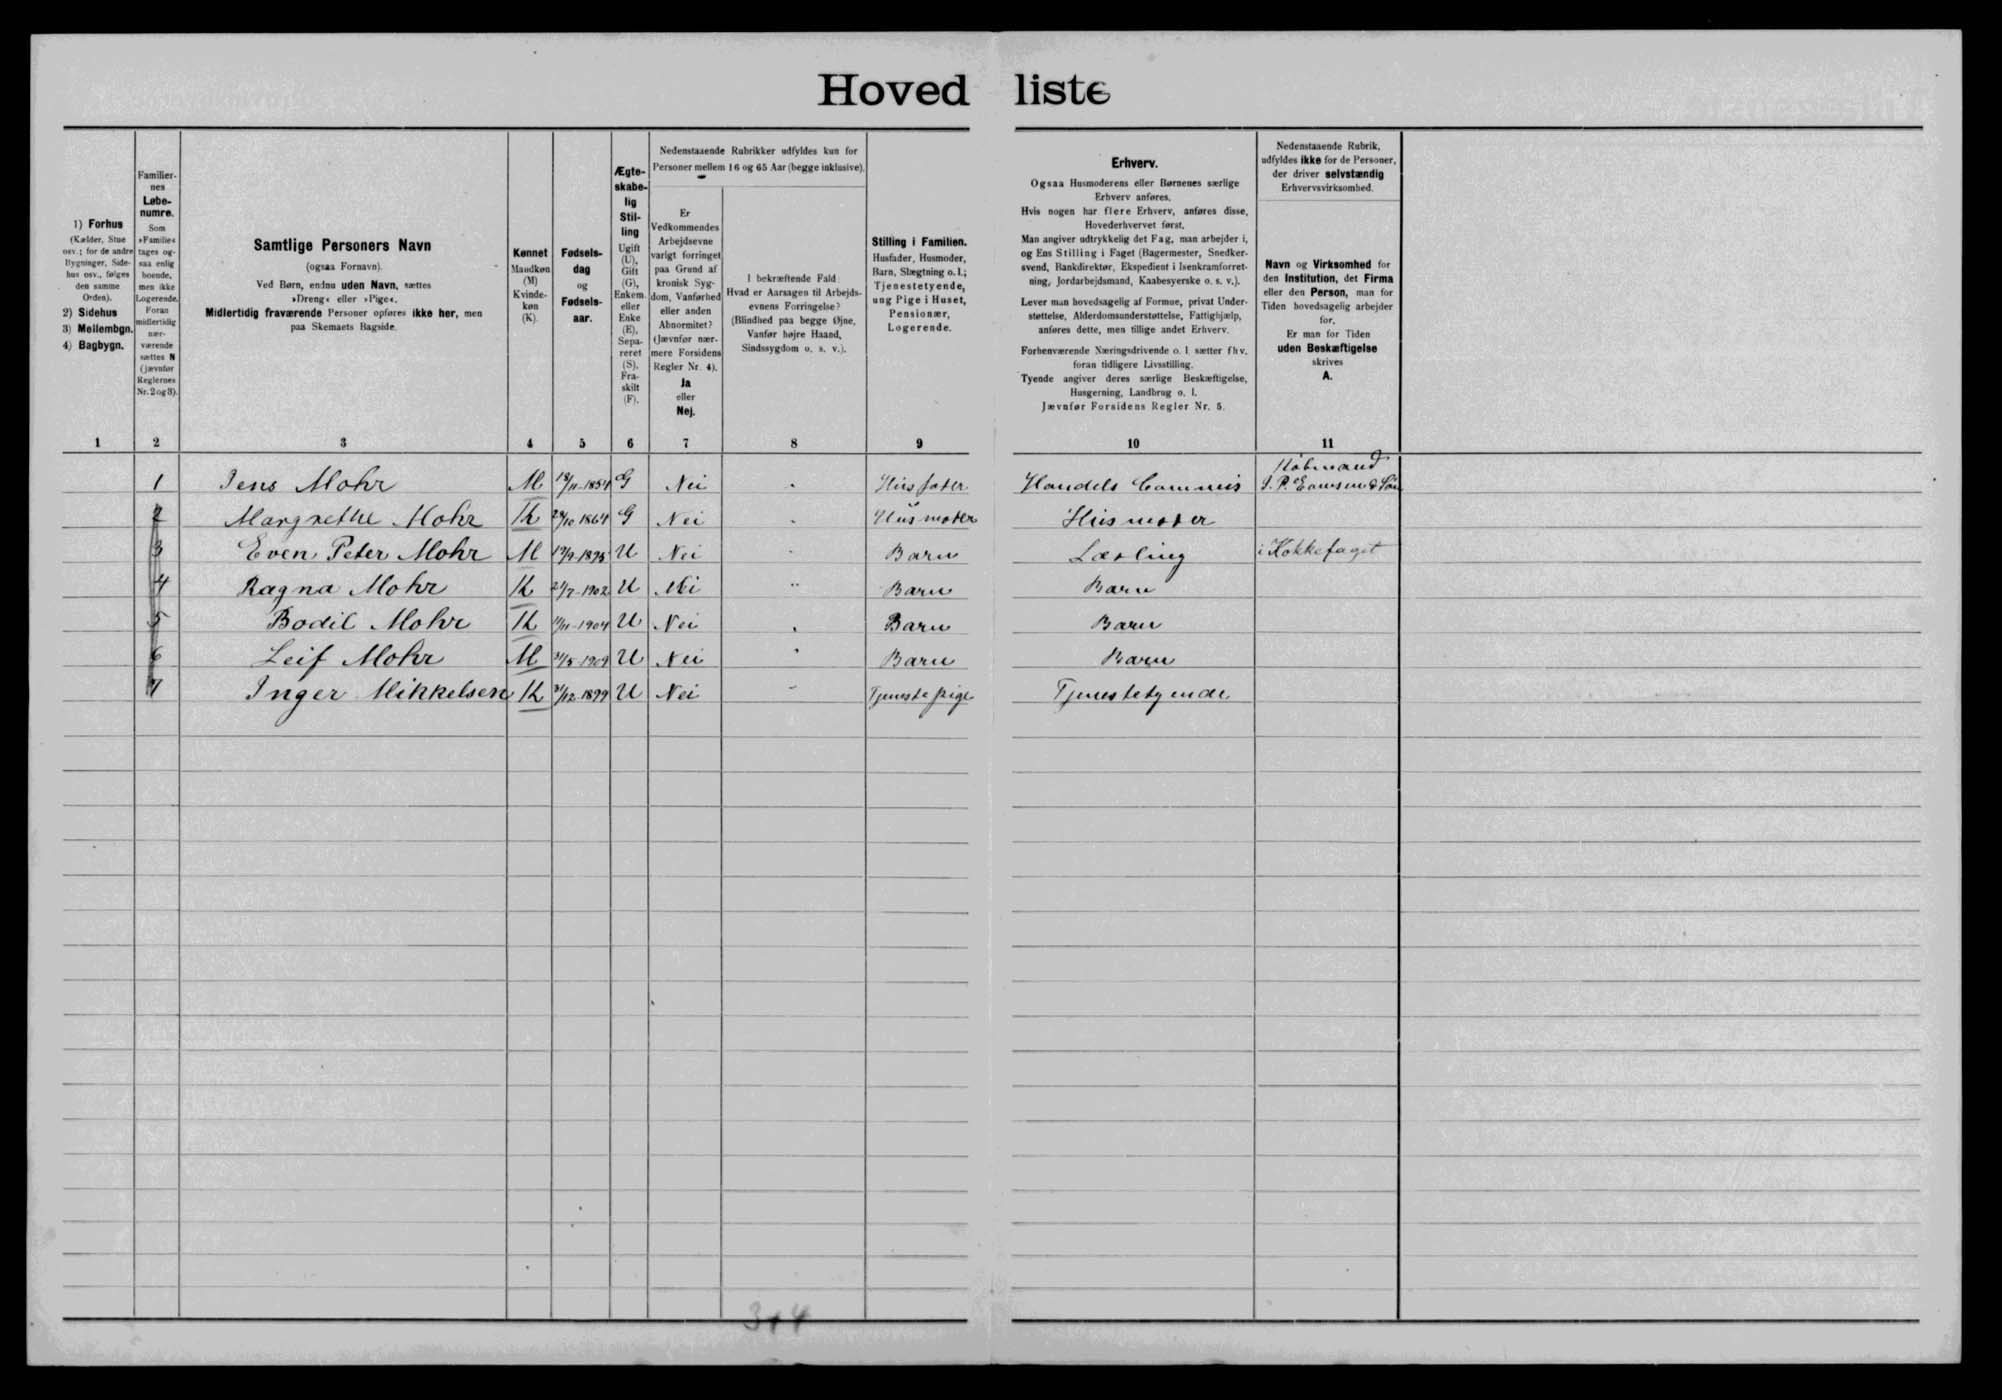 Hovedliste
1) Forhus
(Kælder, Stue
osv.; for de andre
Bygninger, Side-
hus osv., følges
den samme
Orden).
2) Sidehus
3) Mellembgn.
4) Bagbygn.
Familier-
nes
Løbe-
numre.
Som
»Familie«
tages og-
saa enlig
boende,
men ikke
Logerende.
Foran
midlertidig
nær-
værende
sættes N
(jævnfør
Reglernes
Nr. 2 og 3).
Samtlige Personers Navn
(ogsaa Fornavn).
Ved Børn, endnu uden Navn, sættes
»Dreng« eller »Pige«.
Midlertidig fraværende Personer opføres ikke her, men
paa Skemaets Bagside.
Kønnet
Mandkøn
(M)
Kvinde-
køn
(K).
Fødsels-
dag
og
Fødsels-
aar.
Ægte-
skabe-
lig
Stil-
ling
Ugift
(U),
Gift
(G),
Enkem.
eller
Enke
(E),
Sepa-
reret
(S),
Fra-
skilt
(F).
Nedenstaaende Rubrikker udfyldes kun for
Personer mellem 16 og 65 Aar (begge inklusive).
Er
Vedkommendes
Arbejdsevne
varigt forringet
paa Grund af
kronisk Syg-
dom, Vanførhed
eller anden
Abnormitet?
(Jævnfør nær-
mere Forsidens
Regler Nr. 4).
Ja
eller
Nej.
I bekræftende Fald:
Hvad er Aarsagen til Arbejds-
evnens Forringelse?
(Blindhed paa begge Øjne,
Vanfør højre Haand,
Sindssygdom o. s. v.).
Stilling i Familien.
Husfader, Husmoder,
Barn, Slægtning o. l.;
Tjenestetyende,
ung Pige i Huset,
Pensionær,
Logerende.
Erhverv.
Ogsaa Husmoderens eller Børnenes særlige
Erhverv anføres.
Hvis nogen har flere Erhverv, anføres disse,
Hovederhvervet først.
Man angiver udtrykkelig det Fag, man arbejder i,
og Ens Stilling i Faget (Bagermester, Snedker-
svend, Bankdirektør, Ekspedient i Isenkramforret-
ning, Jordarbejdsmand, Kaabesyerske o. s. v.).
Lever man hovedsagelig af Formue, privat Under-
støttelse, Alderdomsunderstøttelse, Fattighjælp,
anføres dette, men tillige andet Erhverv.
Forhenværende Næringsdrivende o. l. sætter fhv.
foran tidligere Livsstilling.
Tyende angiver deres særlige Beskæftigelse,
Husgerning, Landbrug o. l.
Jævnfør Forsidens Regler Nr. 5.
Nedenstaaende Rubrik,
udfyldes ikke for de Personer,
der driver selvstændig
Erhvervsvirksomhed.
Navn og Virksomhed for
den Institution, det Firma
eller den Person, man for
Tiden hovedsagelig arbejder
for.
Er man for Tiden
uden Beskæftigelse
skrives
A.
1 2 3 4 5 6 7 8 9 10 11
Købmand
1 Jens Mohr M 18/11-1854 G Nei Husfater Handels Commis J. P. & Søn
2 Margrethe Mohr K 1864 G Nei Husmoter Husmoter
3 Even Peter Mohr M U Nei Barn Lærling i Kokkefaget
4 Ragna Mohr K 1902 U Nei Barn Barn
5 Bodil Mohr K 11/11-1904 U Nei Barn Barn
6 Leif Mohr M 1909 U Nei Barn Barn
7 Inger Mikkelsen K 1899 U Nei Tjenestepige Tjenestetyende